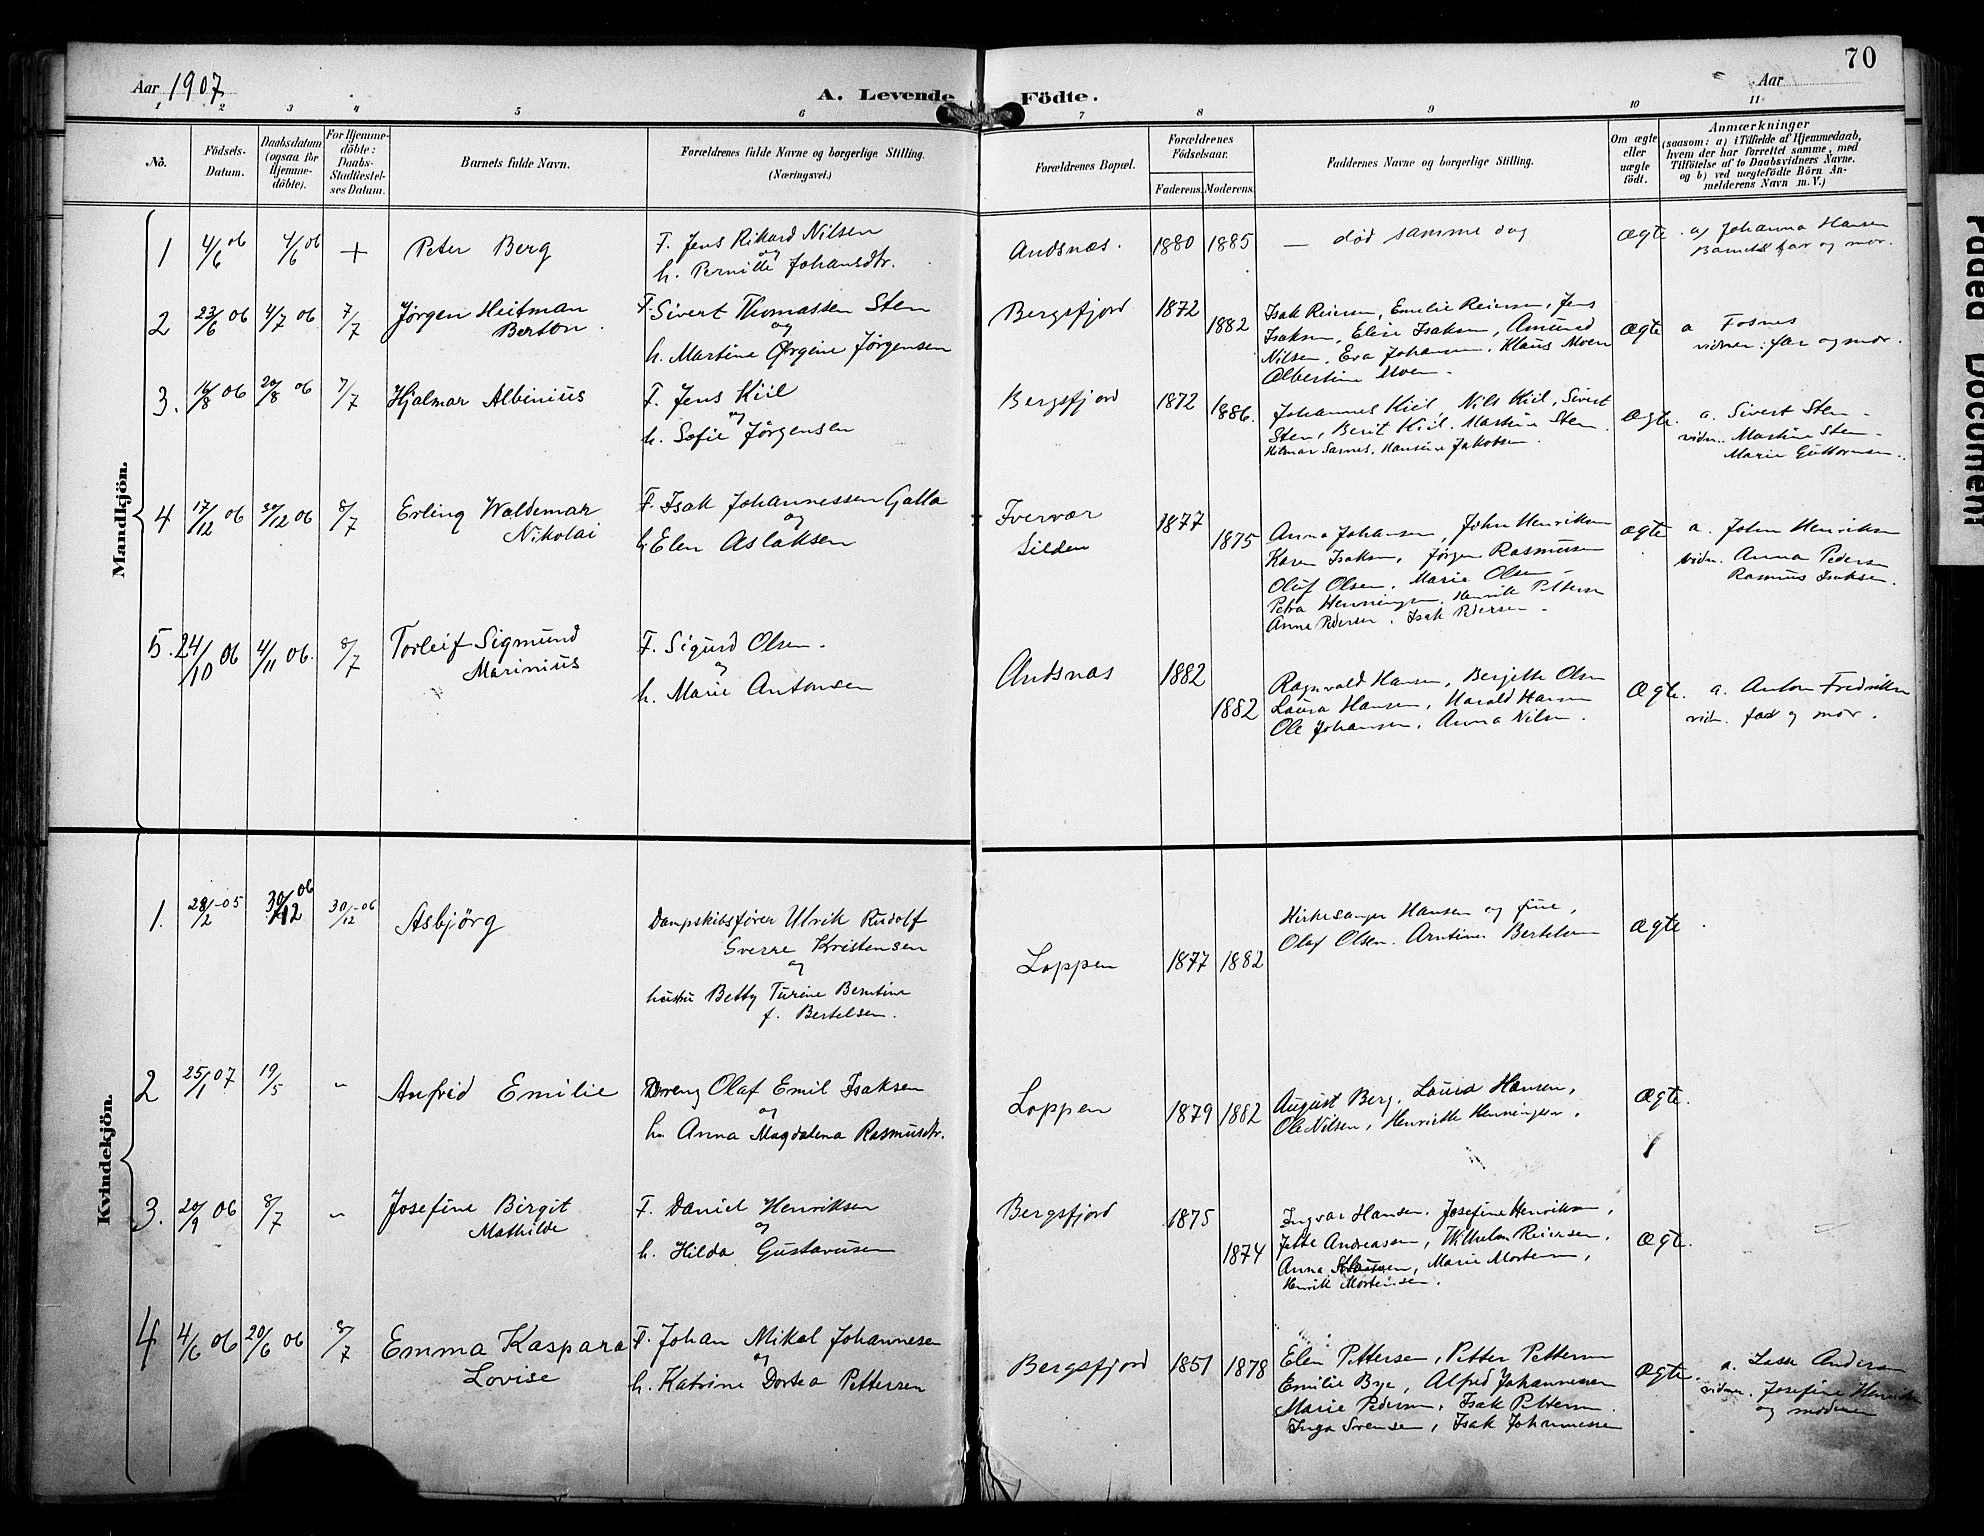 Aar 1907
A. Levende Födte.
Aar
70
1 2 3 4 5 6 7 8 9 10 11
No.
Födsels-
Datum.
Daabsdatum
(ogsaa for
Hjemme-
döbte).
For Hjemme-
döbte:
Daabs-
Stadfæstel-
ses Datum.
Barnets fulde Navn.
Forældrenes fulde Navne og borgerlige Stilling.
(Næringsvei.)
Forældrenes Bopæl.
Forældrenes
Födselsaar.
Faderens. Moderens.
Faddernes Navne og borgerlige Stilling.
Om ægte
eller
uægte
födt.
Anmærkninger
(saasom: a) i Tilfælde af Hjemmedaab,
hvem der har forrettet samme, med
Tilföielse af to Daabsvidners Navne.
og b) ved uægtefödte Börn An-
melderens Navn m. V.)
Mandkjön.
1 4/6 06 4/6 06 + Peter Berg
F. Jens Rikard Nilsen
og
h. Pernille Johansdtr.
Andsnæs. 1880 1885 — död samme dag ægte
a) Johanna Hansen
Barnets far og mor.
2 23/6 06 4/7 06 7/7 Jørgen Heitman
Berton.
F. Sivert Thomassen Sten
og
h. Martine Ørgine Jørgensen
Bergsfjord 1872 1882
Isak Reiersen, Emilie Reiersen, Jens
Isaksen, Elise Isaksen, Amund
Nilsen, Eva Johansen, Klaus Moen
Albertine Moen.
ægte
a Fosnes
vidner: far og mor.
3. 16/8 06 20/8 06 7/7 Hjalmar Albinius
F. Jens Kiil
og
h. Sofie Jørgensen
Bergsfjord 1872 1886.
Johannes Kiil, Nils Kiil, Sivert
Sten, Berit Kiil. Martine Sten.
Hilmar Sarnes, Hansine Jakobsen.
ægte.
a. Sivert Sten -
vidn. Martine Sten -
Marie Guttormsen.
4 17/12 06 30/12 06 8/7 Erling Waldemar
Nikolai
F. Isak Johannessen Galla
og
h. Elen Aslaksen
Ivervær
Silden
1877 1875
Anna Johansen, John Henriksen
Karen Isaksen, Jørgen Rasmussen
Oluf Olsen, Marie Olsen -
Petra Henningsen, Henrik Pettersen
Anna Pedersen. Isak Pedersen.
ægte
a. John Henriksen
vidn. Anna Pedersen
Rasmus Isaksen.
5. 24/10 06 4/11 06. 8/7 Torleif Sigmund
Marinius
F. Sigurd Olsen.
og
h. Marie Antonsen
Andsnæs 1882 1882
Ragnvald Hansen, Bergitte Olsen
Laura Hansen, Harald Hansen
Ole Johansen, Anna Nilsen.
Ægte.
a. Anton Fredriksen
vidn. far og mor.
Kvindekjön.
1. 28/2 -05 30/12 06 30/12 -06 Asbjörg
Dampskibsfører Ulrik Rudolf
Sverre Kristensen
og
hustru Betty Turine Berntine
f. Bertelsen.
Loppen 1877 1882
Kirkesanger Hansen og frue,
Olaf Olsen. Arntine Bertelsen
Ægte
2 25/1 07 19/5 " Anfrid Emilie
Dreng Olaf Emil Isaksen
og
h. Anna Magdalena Rasmusdtr.
Loppen 1879 1882
August Berg, Laura Hansen,
Ole Nilsen, Henriette Henningsen.
ægte.
3. 20/9 06 8/7 " Josefine Birgit
Mathilde
F. Daniel Henriksen
og
h. Hilda Gustavusen
Bergsfjord 1875 1874
Ingvar Hansen, Josefine Henriksen,
Jette Andreasen, Wilhelm Reiersen,
Anna, Marie Mortensen,
Henrik Mortensen.
ægte.
4 4/6 06 20/6 06 8/7 Emma Kaspara
Lovise
F. Johan Mikal Johannesen
og
h. Katrine Dortea Pettersen
Bergsfjord 1851 1878
Elen Pettersen, Petter Pettersen
Emilie Bye, Alfred Johannessen
Marie Pedersen, Isak Pettersen.
Inga Sørensen, Isak Johannessen
ægte.
a. Lasse Andersen
vidner. Josefine Henriksen
og moderen
Faded Document